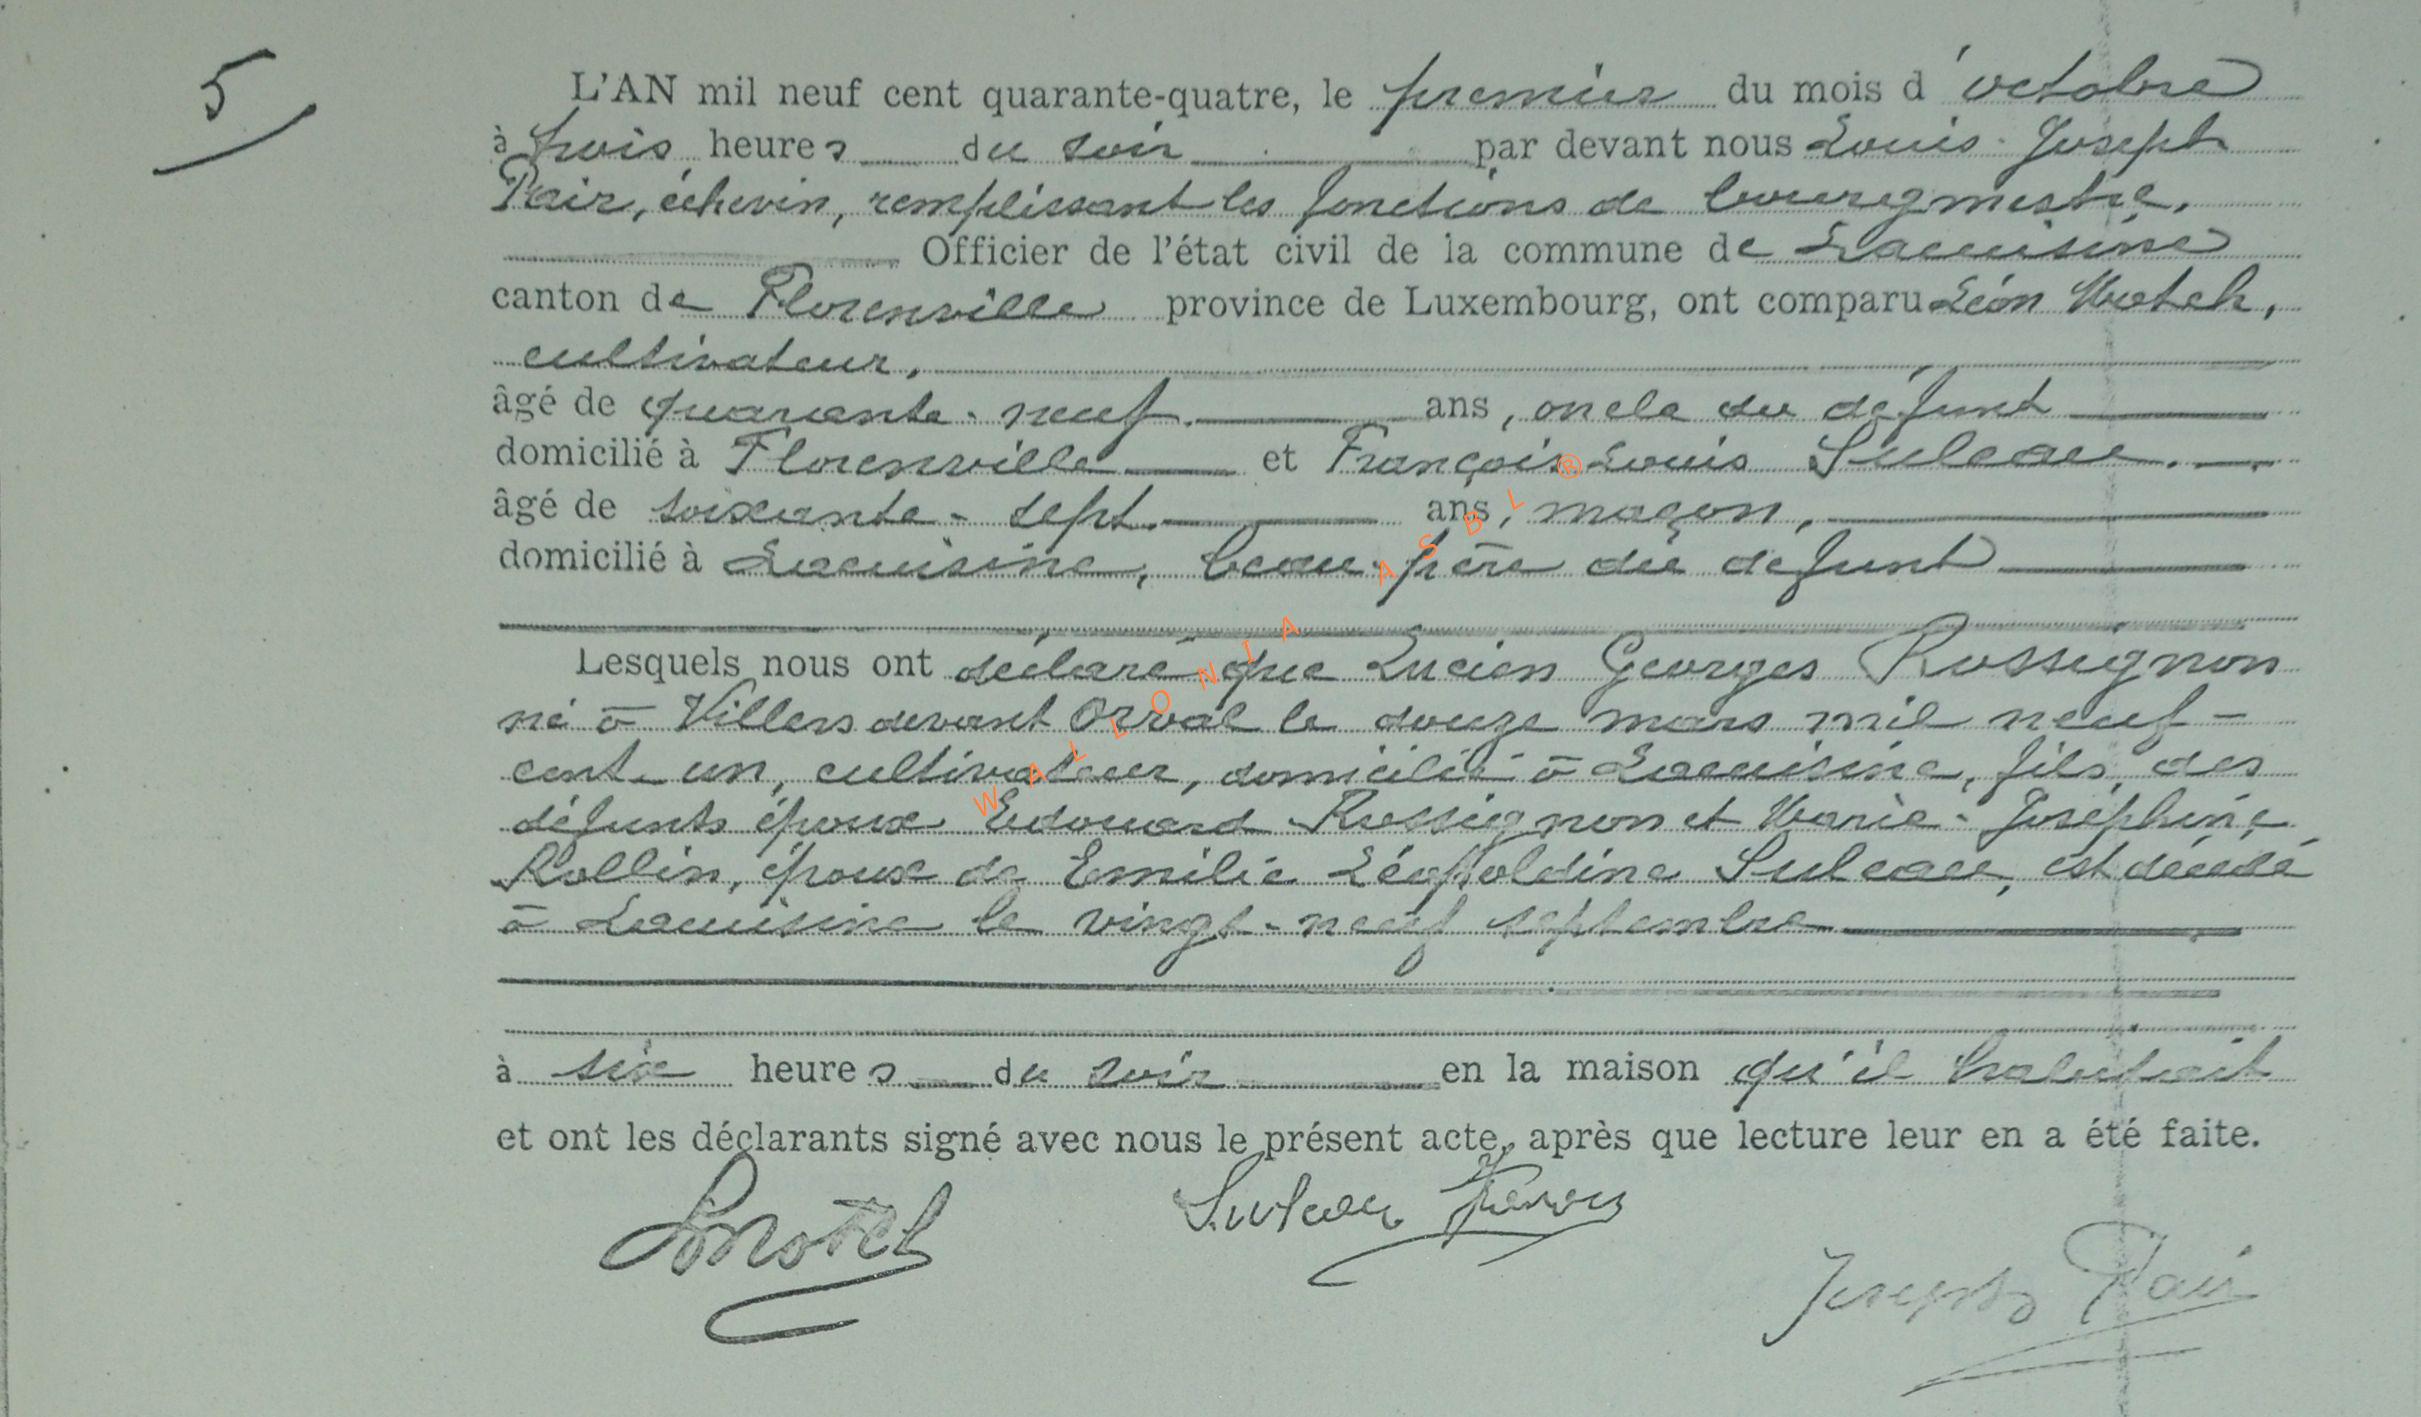 5
L'AN mil neuf cent quarante-quatre, le premier du mois d'octobre
à trois heures du soir par devant nous Louis-Joseph
Pair, échevin, remplissant les fonctions de bourgmestre,
Officier de l'état civil de la commune de Lacuisine
canton de Florenville province de Luxembourg, ont comparu Léon
cultivateur,
âgé de quarante-neuf ans, oncle du défunt
domicilié à Florenville et François Louis Suleau.
âgé de soixante-sept. ans, maçon,
domicilié à Lacuisine, beau-père du défunt
Lesquels nous ont déclaré que Lucien Georges Rossignon
né à Villers devant Orval le douze mars mil neuf-
cent-un, cultivateur, domicilié à Lacuisine, fils des
défunts époux Edouard Rossignon et Marie-Joséphine
Rollin, époux de Emilie Léopoldine Suleau, est décédé
à Lacuisine le vingt-neuf septembre
à six heures du soir en la maison qu'il habitait
et ont les déclarants signé avec nous le présent acte, après que lecture leur en a été faite.
Suleau
Joseph Pair
WALLONIA ASBL ®